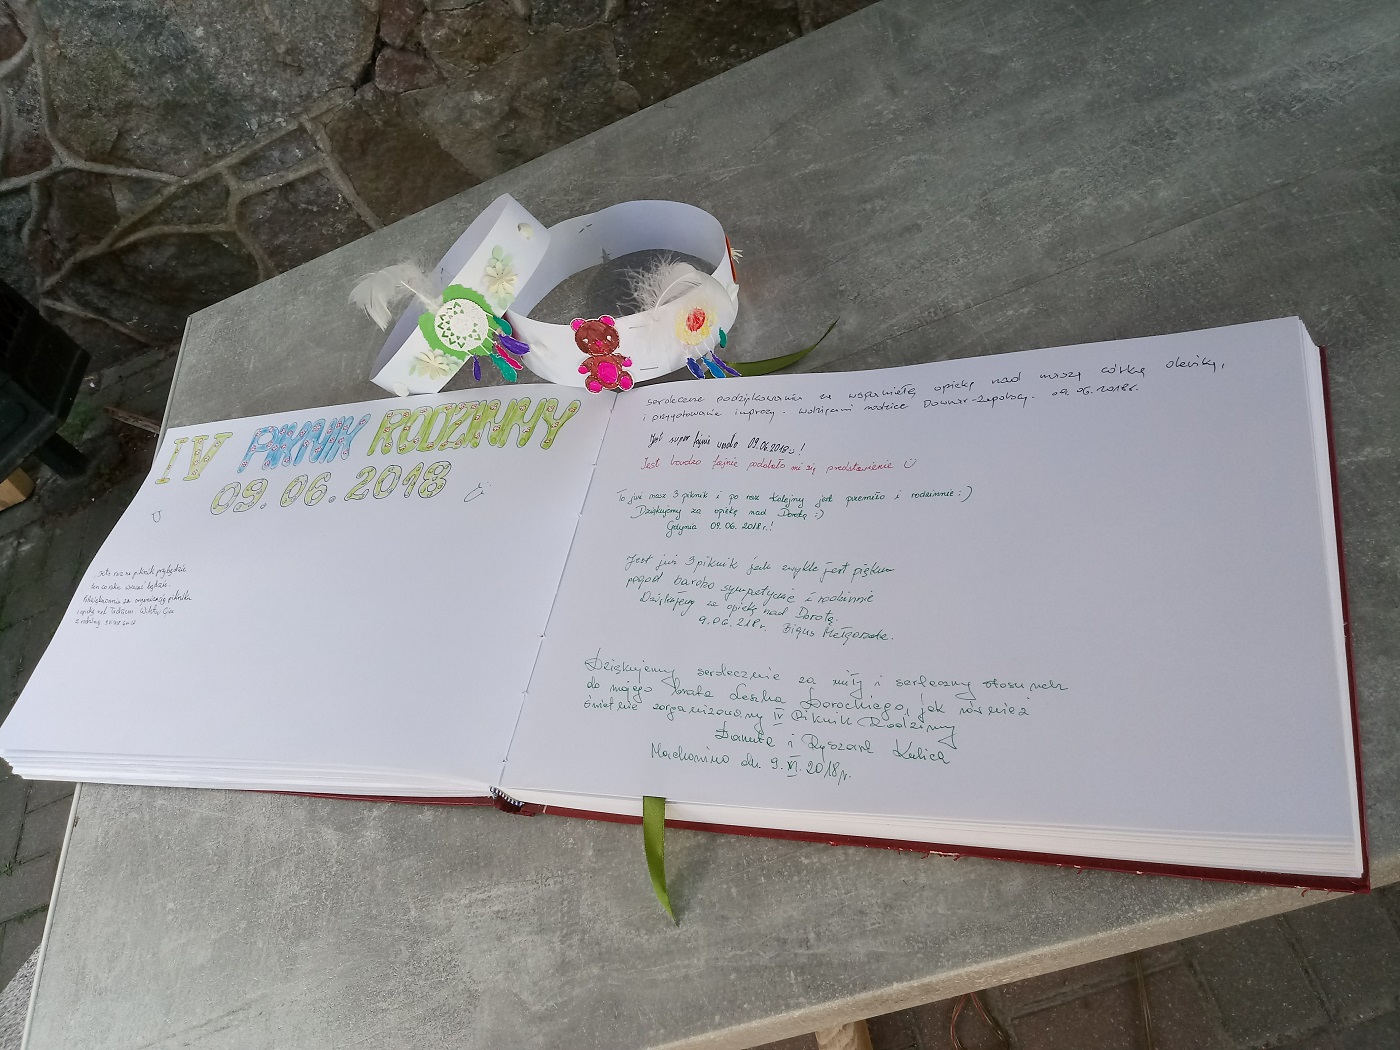 IV PIKNIK RODZINNY
09.06.2018
na piknik przybędzie
za organizację pikniku
i opiekę nad
z rodziną
serdeczne podziękowania za wspaniałą opiekę nad naszą córką
i przygotowanie imprezy. Wdzięczni rodzice Downar-Zapolscy. 09.06.2018r.
Jest super fajnie 09.06.2018r!
Jest bardzo fajnie podobało mi się predstawienie
To już nasz 3 piknik i po raz kolejny jest przemiło i rodzinnie :)
Dziękujemy za opiekę nad Dorotą :)
Gdynia 09.06.2018r.!
Jest już 3 piknik jak zwykle jest piękna
pogod bardzo sympatycznie i rodzinnie
Dziękujemy za opiekę nad Dorotą.
9.06.218r. Bigus Małgorzata.
Dziękujemy serdecznie za miły i serdeczny stosunek
do mojego brata Leszka Dorockiego, jak również
świetnie zorganizowany IV Piknik Rodzinny
Danuta i Ryszard Kulica
dn. 9.VI.2018r.